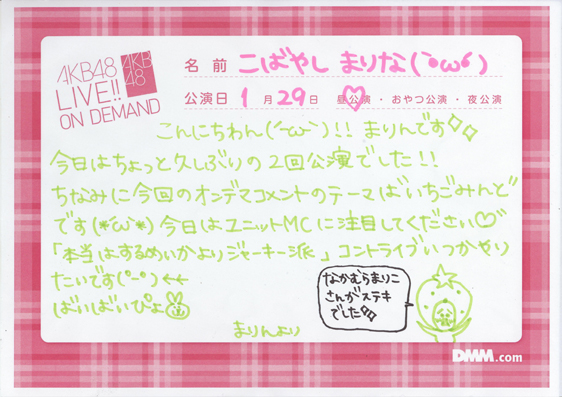 AKB48
LIVE!!
ON DEMAND
AKB
48
名 前 こばやし まりな(`•ω•´)
公演日 1 月 29 日 昼公演 ・ おやつ公演 ・ 夜公演
こんにちわん(´･ω･`)!! まりんです
今日はちょっと久しぶりの2回公演でした!!
ちなみに今回のオンデマコメントのテーマはいちごみんと
です(*´ω`*)今日はユニットMCに注目してください♡
「本当はするめいかよりジャーキー派」コントライブいつかやり
たいです(°-°)←←
ばいばいぴよ
まりんより
なかむらまりこ
さんがステキ
でした
DMM.com